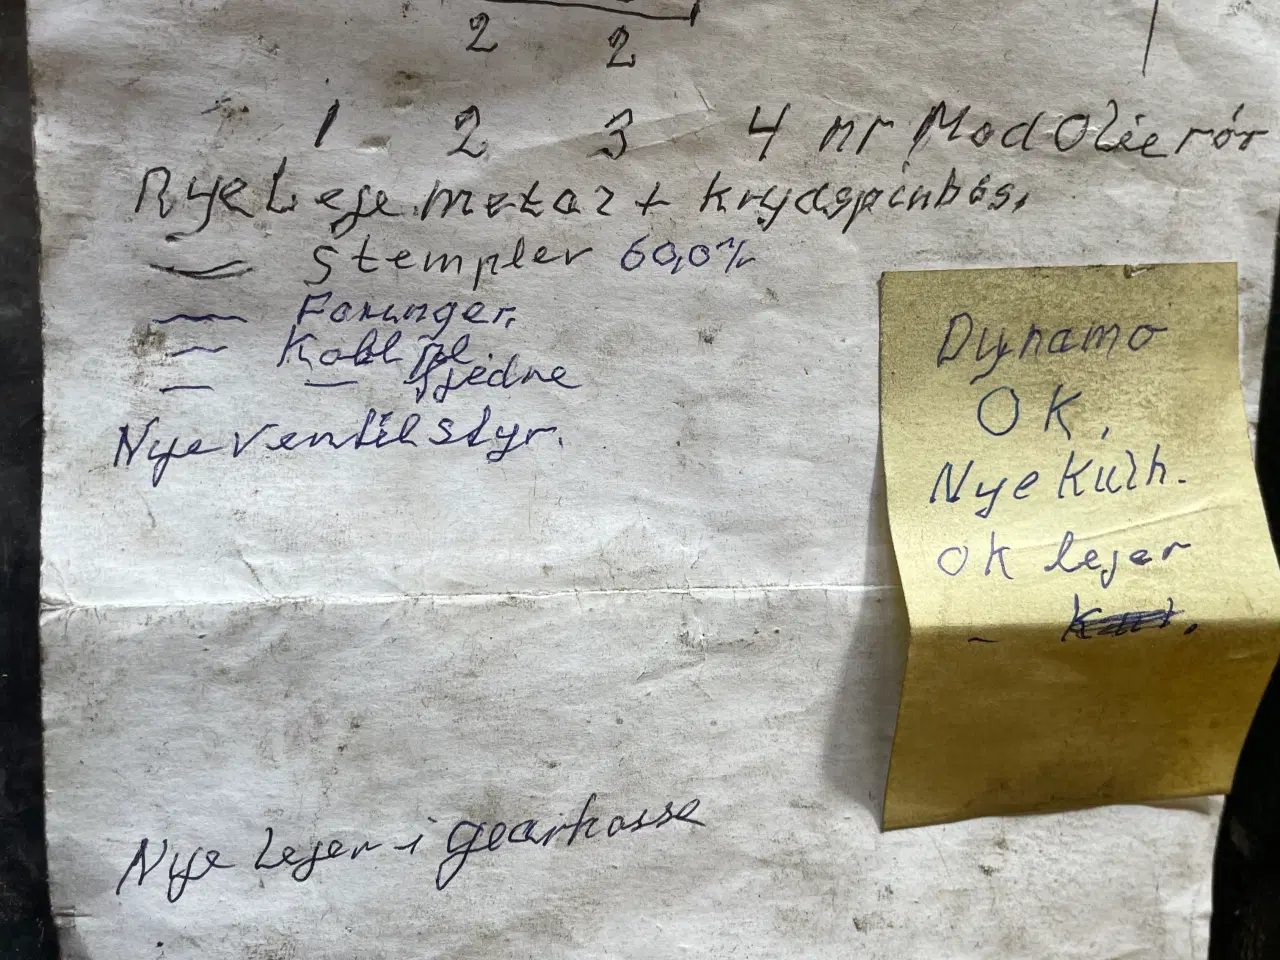 2 2
1 2 3 4 nr Mod Olie rör
Nye Leje metar + krydspinbös.
— Stempler 60,0%
— Foringer.
— Kobl pl.
— — fjedre
Nye ventilstyr.
Dynamo
OK.
Nye Kulh.
OK lejer
—
Nye Lejer i gearkasse